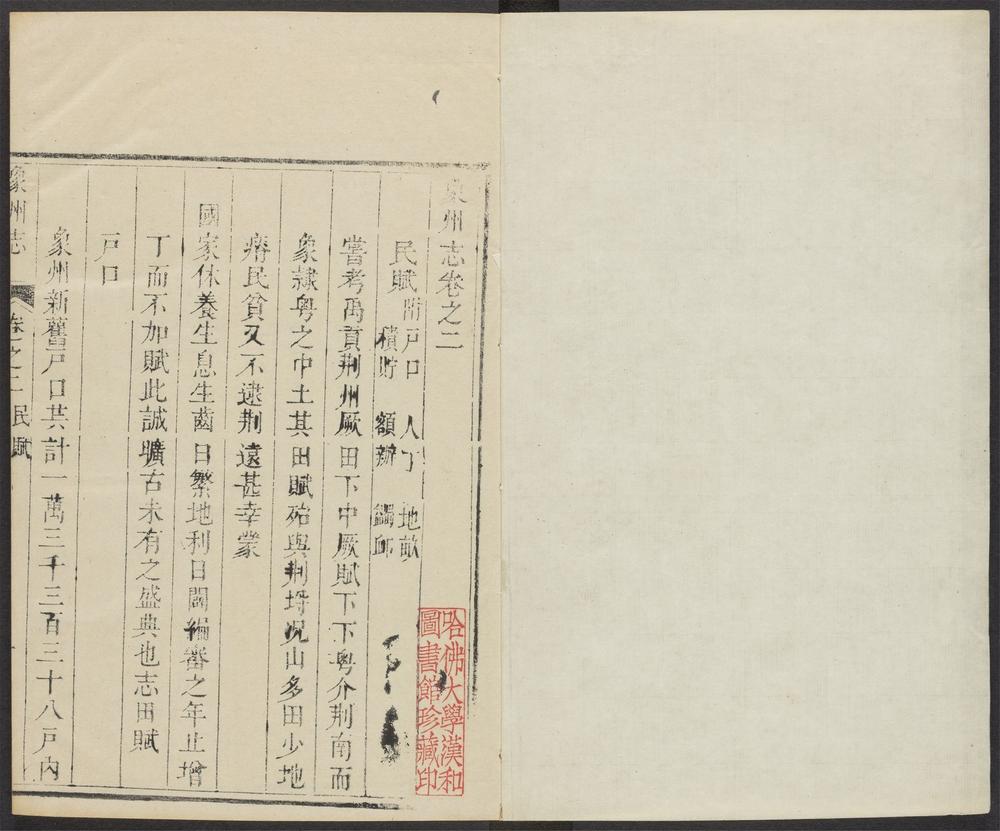 象州志卷之二
民賦 附戶口 人丁 地畝
積貯 額辦 蠲卹
嘗考禹貢荆州厥田下中厥賦下下粤介荆南而
象隷粤之中土其田賦殆與荆埒况山多田少地
瘠民貧又不逮荆遠甚幸蒙
國家休養生息生齒日繁地利日闢編審之年止增
丁而不加賦此誠曠古未有之盛典也志田賦
戶口
象州新舊戶口共計一萬三千三百三十八戶内
象州志 卷之二 民賦 一
哈佛大學漢和
圖書館珍藏印